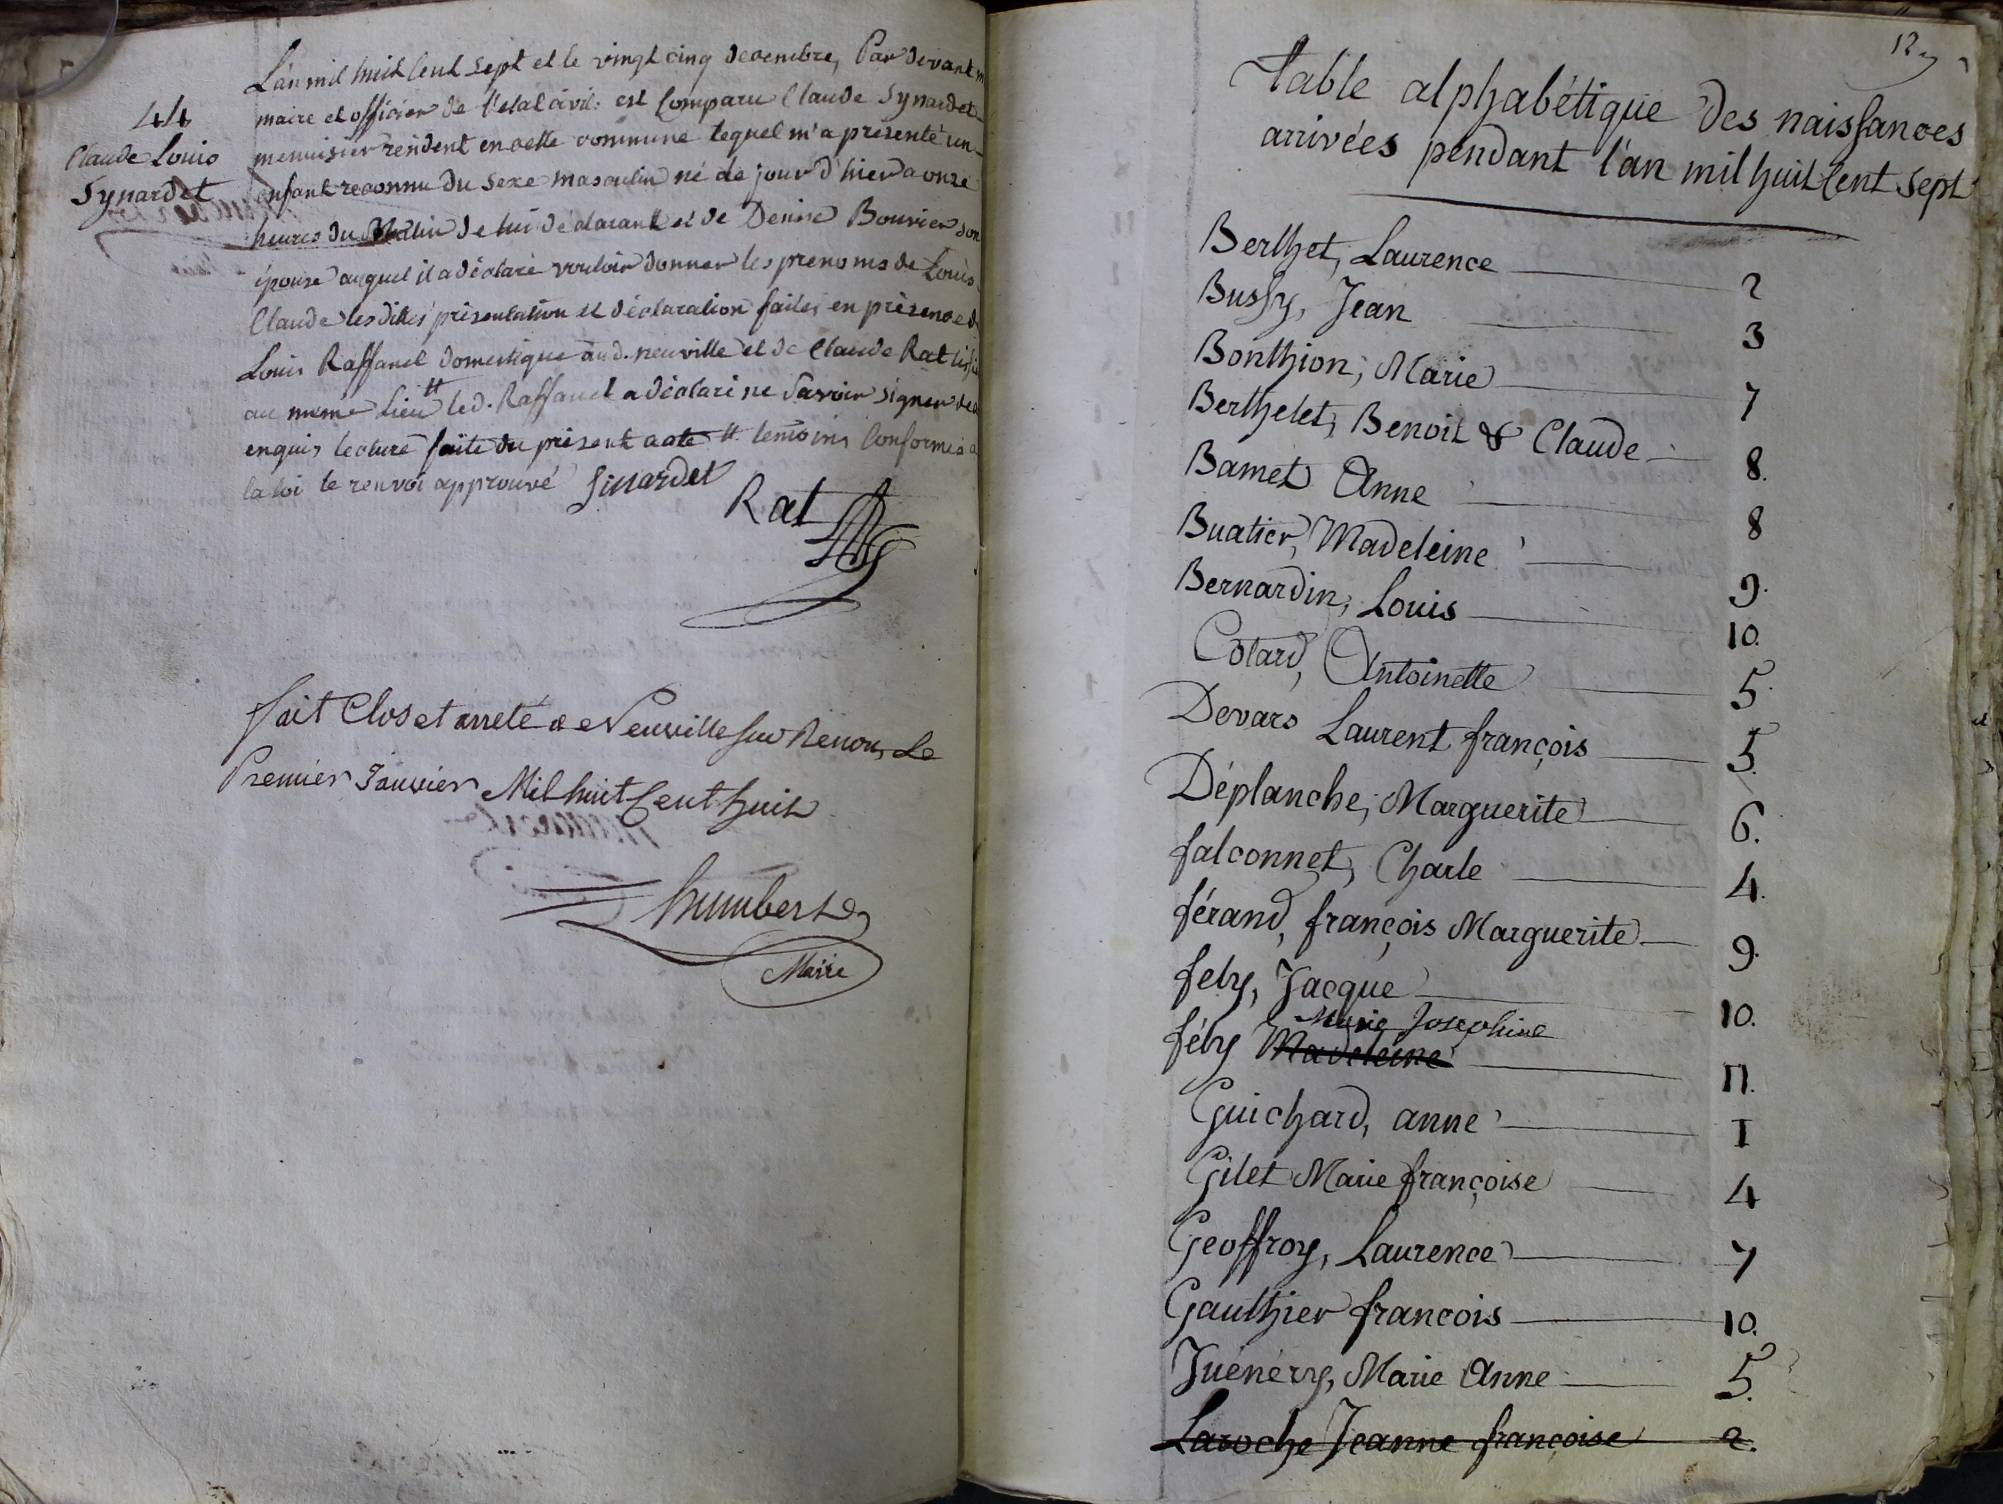 44
Claude Louis
Synardet
L'an mil huit Cent Sept et le vingt cinq decembre, Par devant
maire et officier de l'etat civil est Comparu Claude Synardet
menuisier résident en cette commune lequel m'a présenté un
enfant reconnu du sexe masculin né de jour d'hier a onze
heures du Matin de lui déclarant et de Denise Bouvier son
épouse auquel il a déclaré vouloir donner les prenoms de Louis
Claude lesdittes présentation et déclaration faites en présence de
Louis Raffanel domestique aud. neuville et de Claude Rat
au meme Lieu # led. Raffanel a déclaré ne savoir signer de ce
enquis lecture faite du présent acte # temoins Conforme a
la loi le renvoi approuvé Sinardet
Rat
fait Clos et arreté a Neuville sur Renon, Le
Premier Janvier Mil huit Cent huit
humbert
Maire
12
Table alphabétique des naissances
arrivées pendant l'an mil huit Cent Sept
Berthet, Laurence 2
Bussy, Jean 3
Bonthion, Marie 7
Berthelet, Benoit & Claude 8.
Bamet Anne 8
Buatier, Madeleine 9.
Bernardin, Louis 10.
Cotard, Antoinette 5.
Devars Laurent françois 5.
Déplanche, Marguerite 6.
falconnet, Charle 4.
férand, françois Marguerite 9.
feby, Jacque 10.
Marie Josephine
féby Madeleine 11.
Guichard, anne 1
Gilet Marie françoise 4
Geoffroy, Laurence 7
Gauthier francois 10.
Juénéry, Marie Anne 5.
Laroche Jeanne françoise 2.